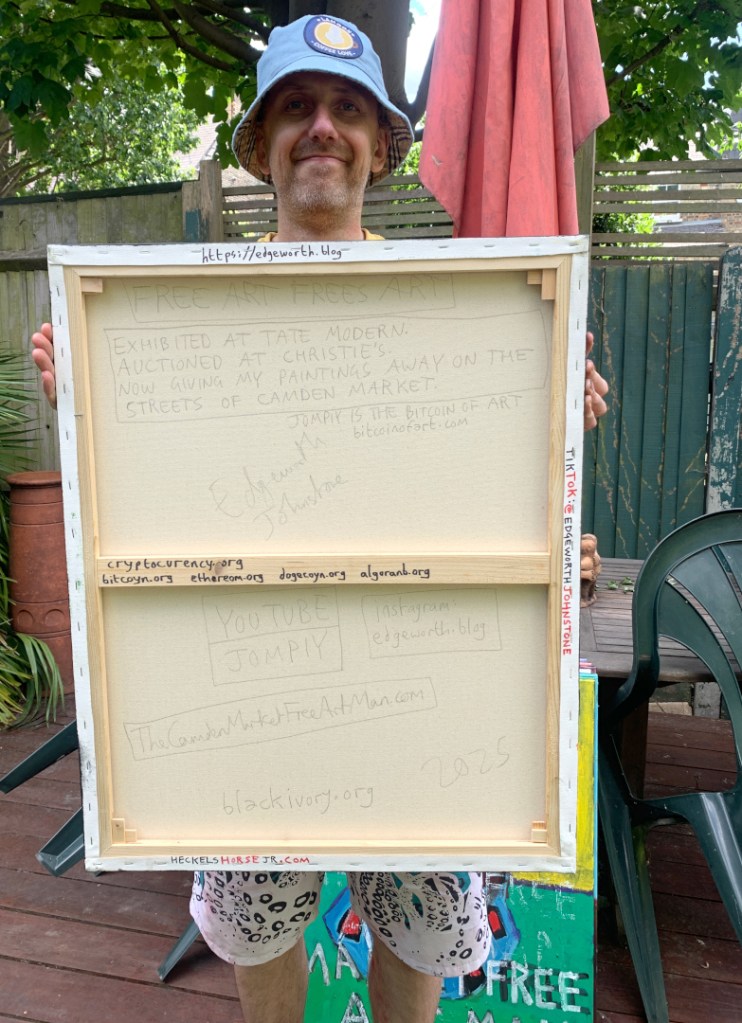 COFFEE LOVE
https://edgeworth.blog
FREE ART FREES ART
EXHIBITED AT TATE MODERN.
AUCTIONED AT CHRISTIE'S.
NOW GIVING MY PAINTINGS AWAY ON THE
STREETS OF CAMDEN MARKET.
JOMPIY IS THE BITCOIN OF ART
bitcoinofart.com
Edgeworth
Johnstone
TIKTOK:@EDGEWORTHJOHNSTONE
cryptocurency.org
bitcoyn.org ethereom.org dogecoyn.org algoranb.org
YOUTUBE
JOMPIY
instagram:
edgeworth.blog
TheCamdenMarketFreeArtMan.com
2025
blackivory.org
HECKELSHORSEJR.COM
FREE